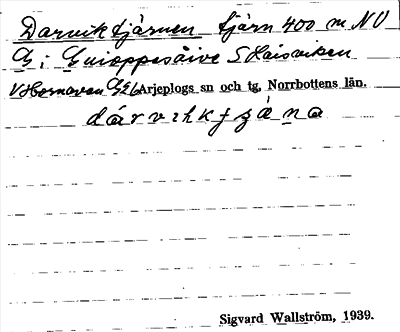 Darviktjärnen tjärn 400 m NV
G i Guioppesåive S Kaisviken
V Hornavan G2b Arjeplogs sn och tg, Norrbottens län.
dárvihktjä́na
Sigvard Wallström, 1939.